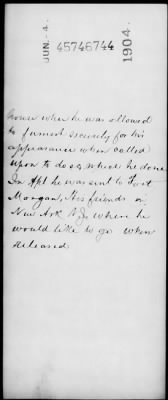 JUN. -4.
45746744
1904.
house when he was allowed
to furnish security for his
appearance when called
upon to do so, which he done
In Apl he was sent to Fort
Morgan, His friends in
New Ark N.J. where he
would like to go when
released